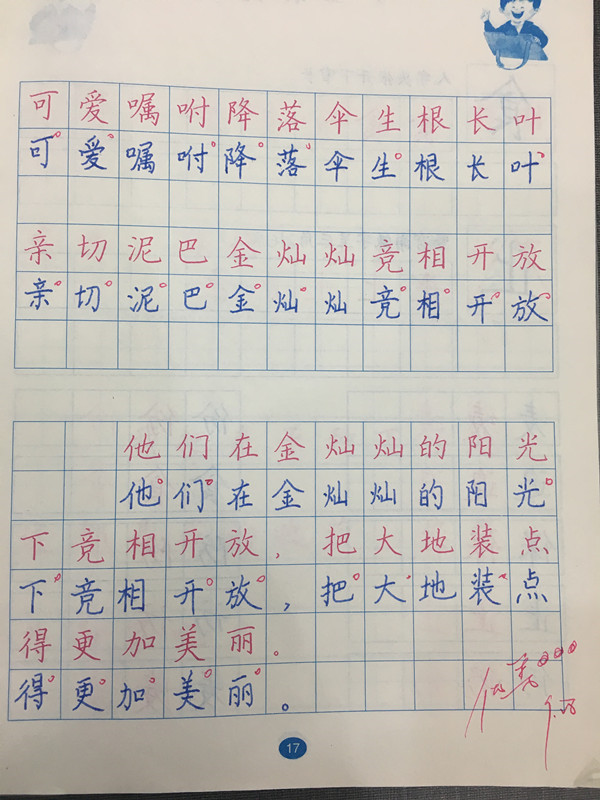 可爱嘱咐降落伞生根长叶
可爱嘱咐降落伞生根长叶
亲切泥巴金灿灿竞相开放
亲切泥巴金灿灿竞相开放
他们在金灿灿的阳光
他们在金灿灿的阳光
下竞相开放，把大地装点
下竞相开放，把大地装点
得更加美丽。
得更加美丽。
17